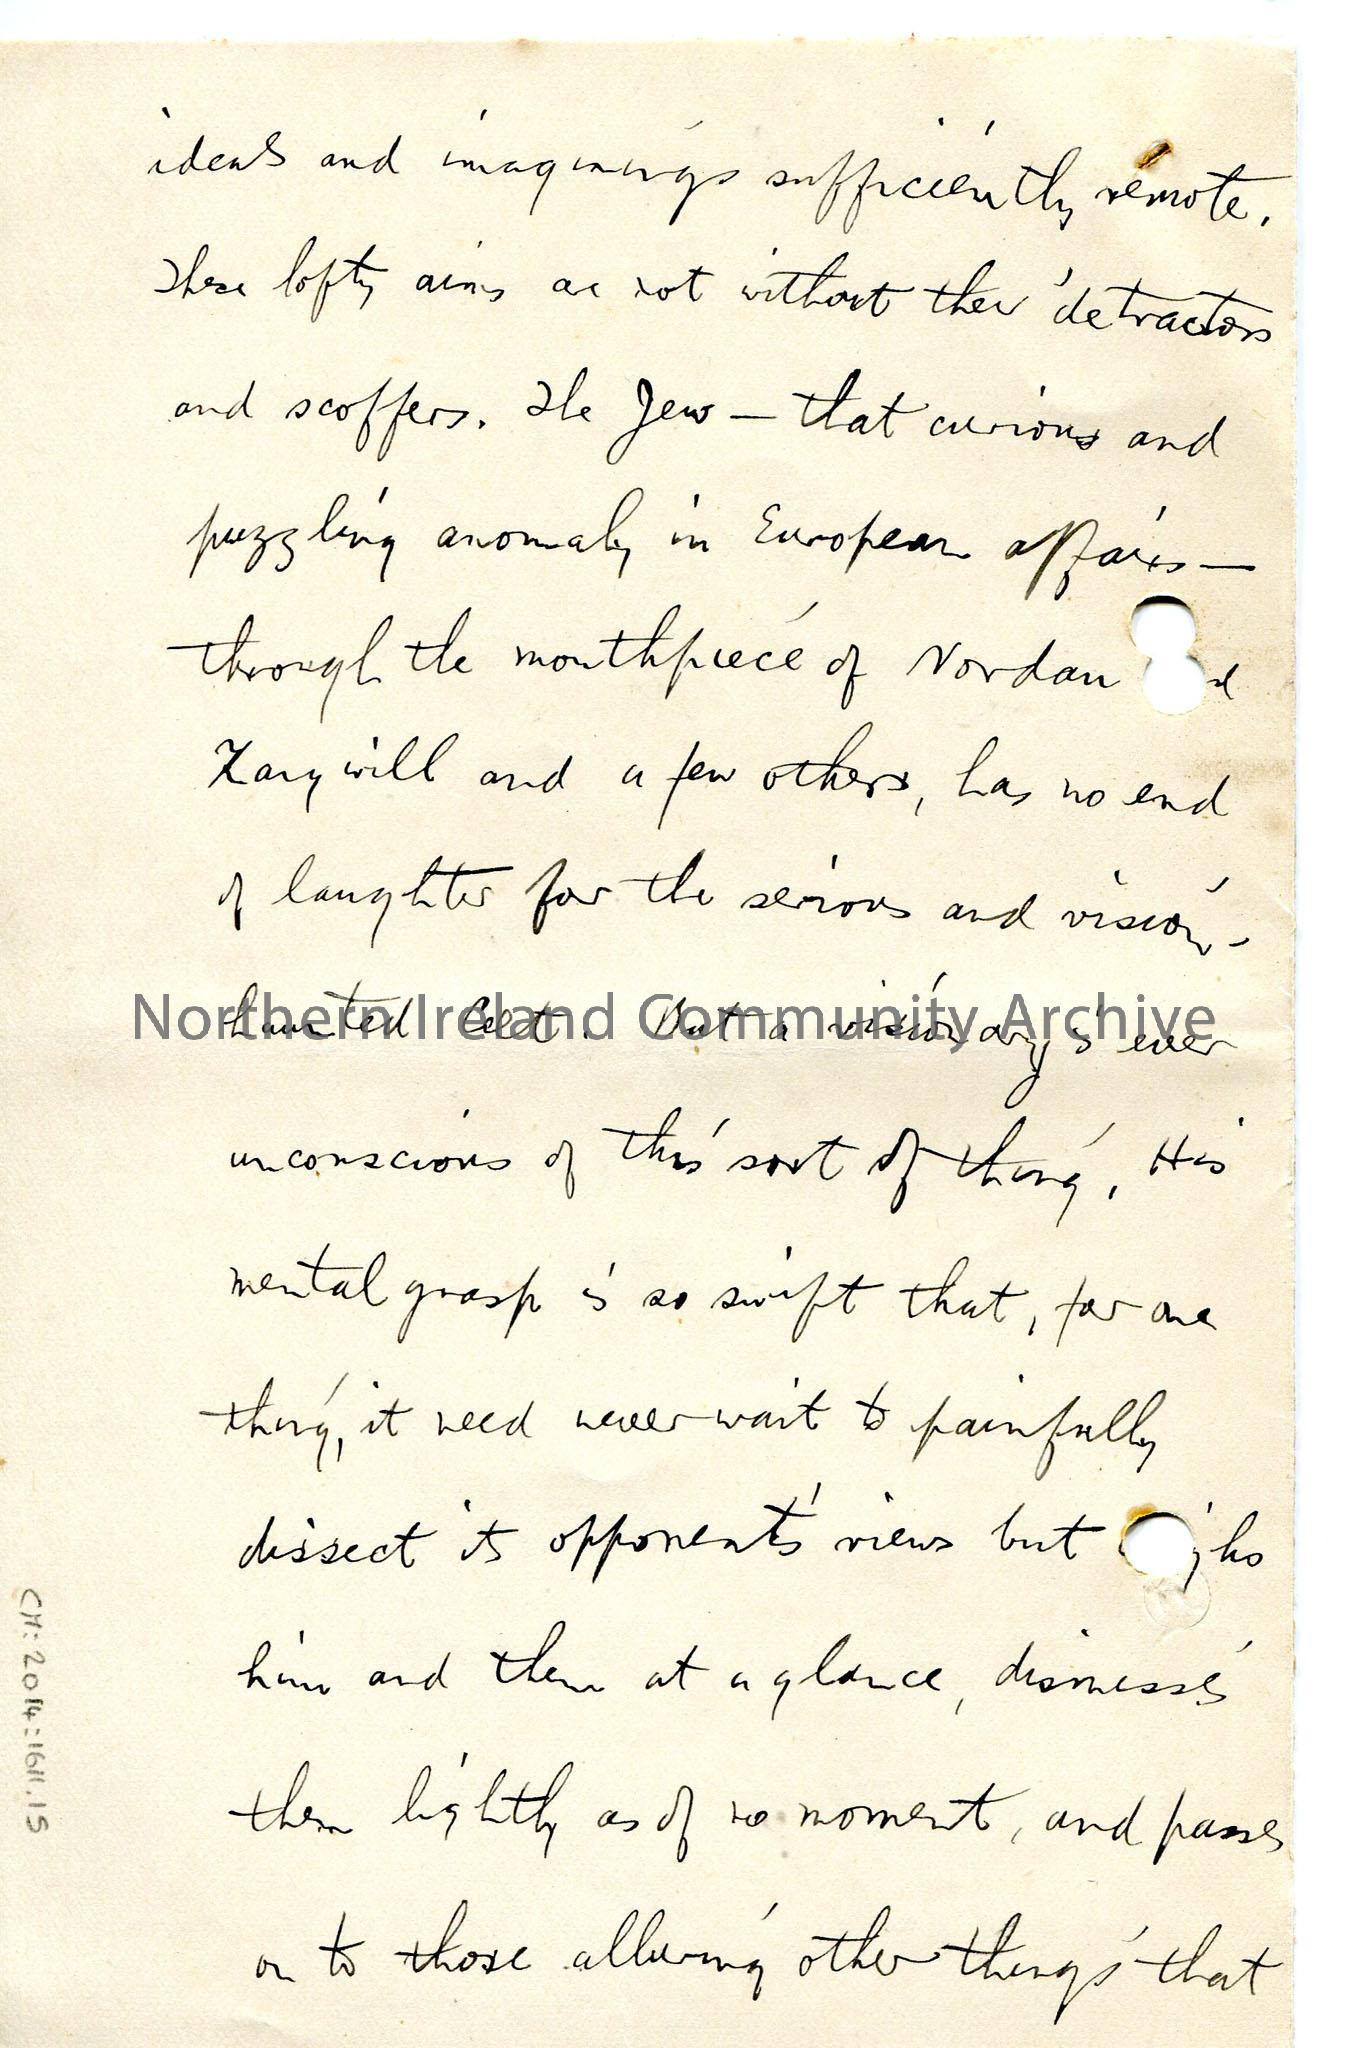 ideals and imaginings sufficiently remote.
These lofty aims are not without their detractors
and scoffers. The Jew — that curious and
puzzling anomaly in European affairs —
through the mouthpiece of Nordau
Zangwill and a few others, has no end
of laughter for the serious and vision-
haunted Celt. But a visionary is ever
unconscious of this sort of thing. His
mental grasp is so swift that, for one
thing, it need never wait to painfully
dissect its opponent's views but
him and them at a glance, dismisses
them lightly as of no moment, and passes
on to those alluring other things that
Northern Ireland Community Archive
CM:2014:1611.15